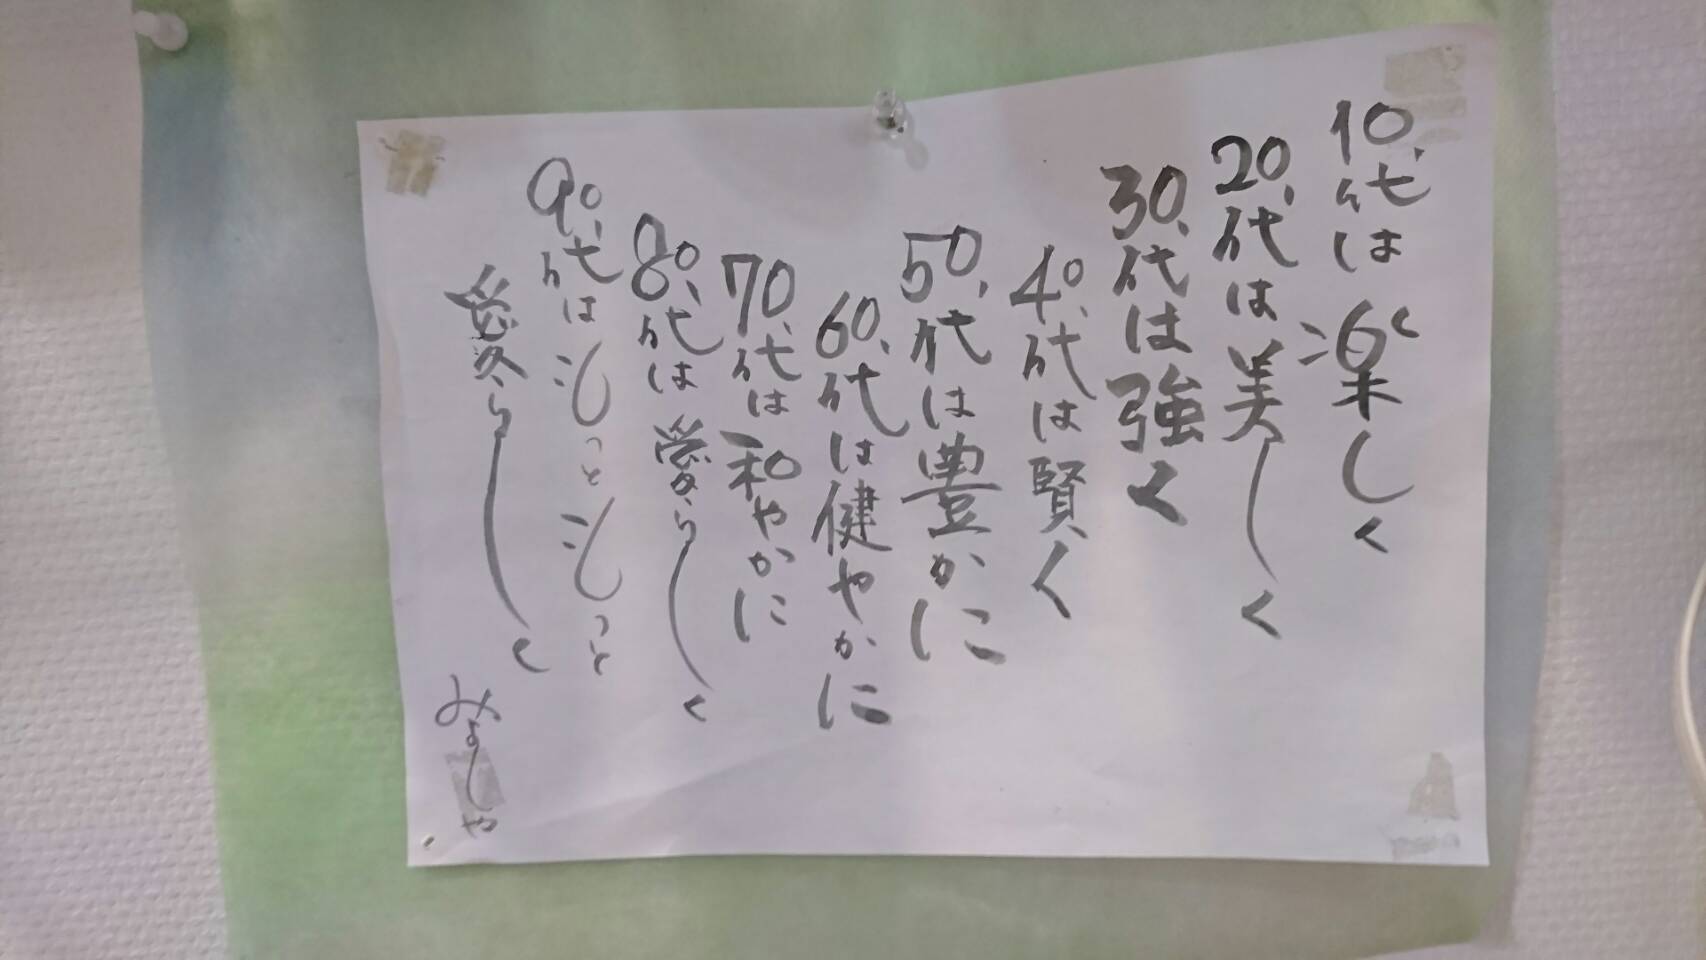 10代は楽しく
20代は美しく
30代は強く
40代は賢く
50代は豊かに
60代は健やかに
70代は和やかに
80代は愛らしく
90代はもっともっと
愛らしく
みよしや